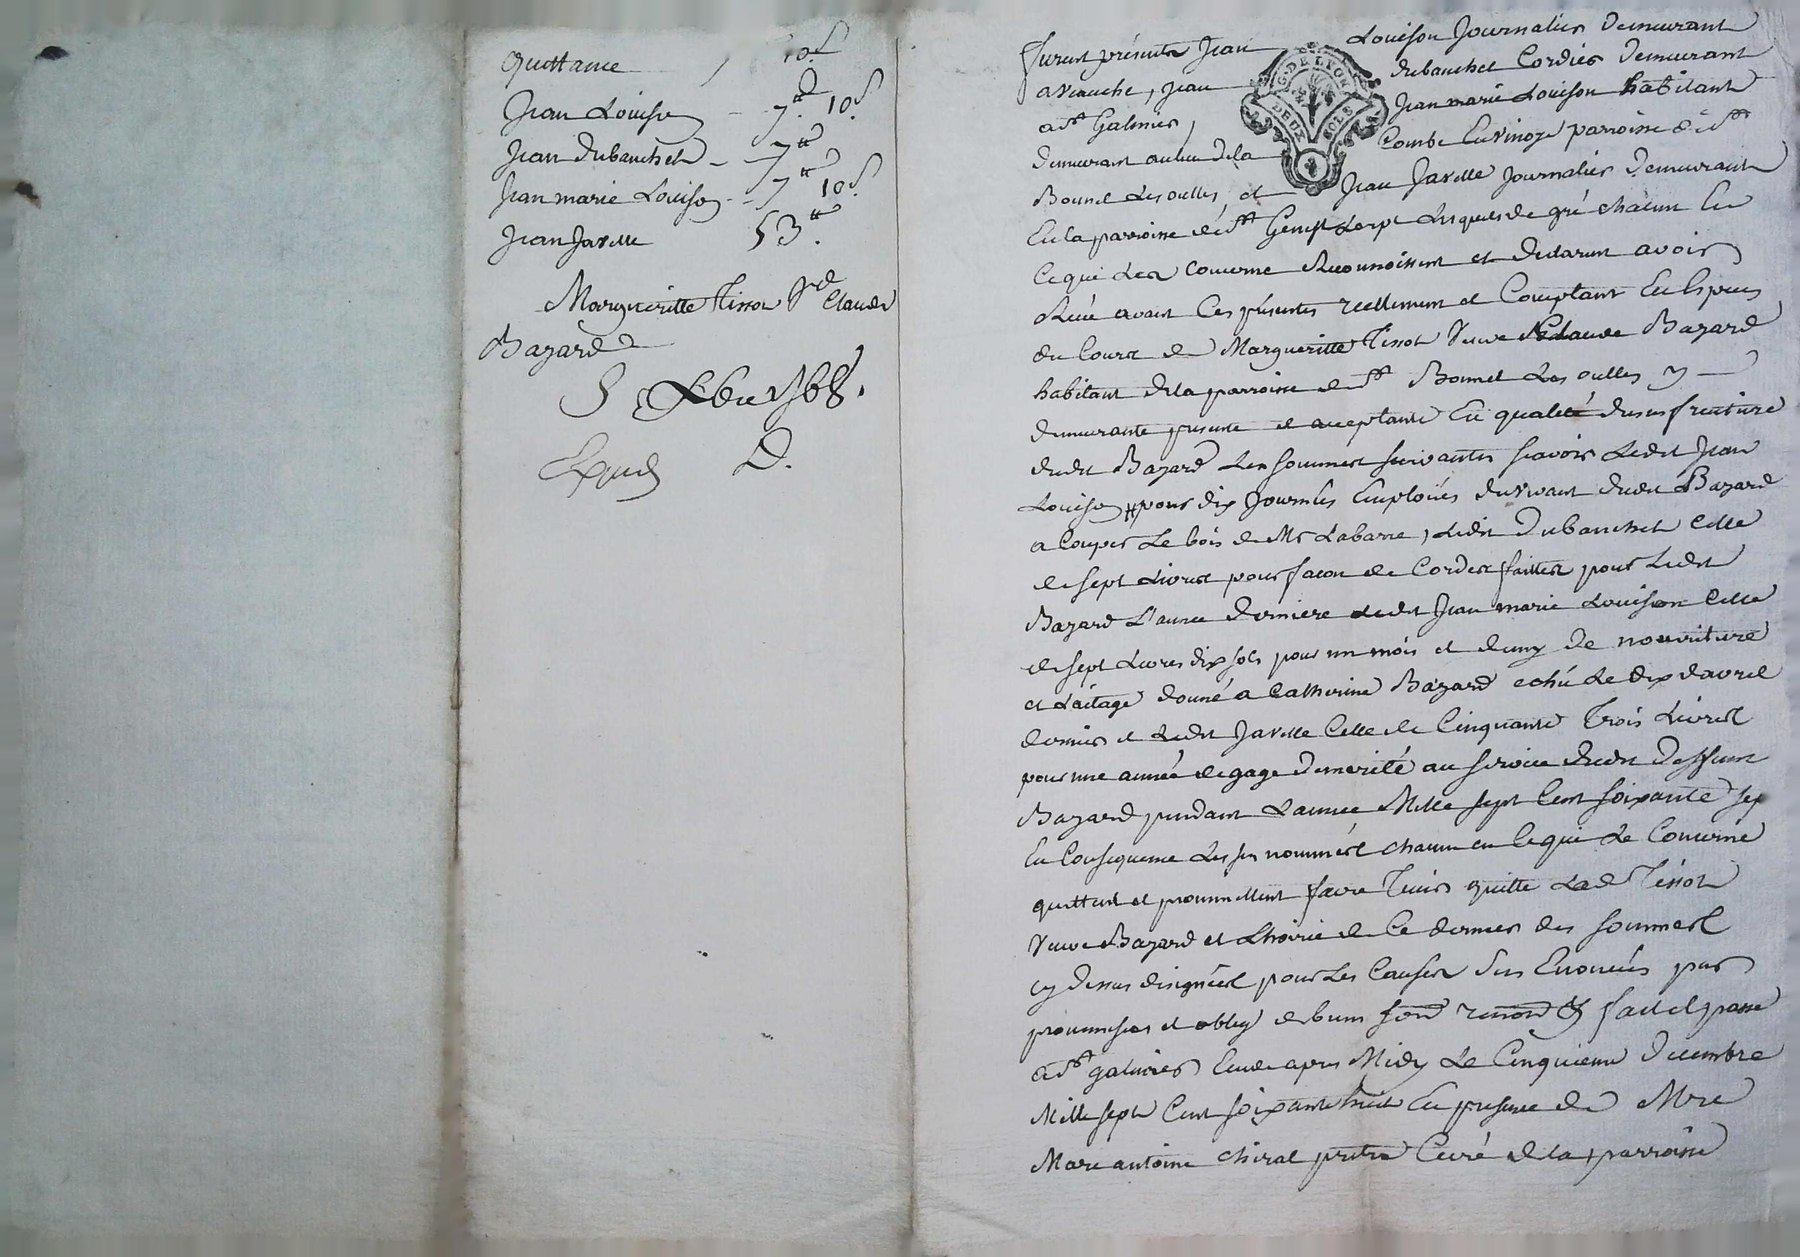 Quittance 10.s
D
Jean Louison - 7.# 10.s
Jean Dubanchet - 7#
Jean marie Louison - 7# 10.s
Jean Javelle 53.#
Margueritte Tissot Claude
Bazard
5 Xbre 1768.
Exped D.
G. DE LYON
DEUX SOLS
furent présents Jean Louison Journalier demeurant
aveauche, Jean dubanchet Cordier demeurant
a St Galmier, Jean marie Louison habitant
demeurant au lieu de la Combe En vinoze parroisse de St
Bonnet Les oulles, et Jean Javelle Journalier demeurant
En la parroisse de St Genest Lerpt Lesquels de gré chacun En
Ce qui Les Concerne Reconnoissent et declarent avoir
Receu avant Ces présentes reellement et Comptant En Especes
du Cours de Margueritte Tissot Veuve de Claude Bazard
habitant de la parroisse de St Bonnet Les oulles y
demeurante presente et acceptante En qualité dusufruitiere
dudit Bazard Les sommes suivantes scavoir Ledit Jean
Louison # pour dix Journées Emploiées du vivant dudit Bazard
a Couper Le bois de Mr Labarre, Ledit Dubanchet Celle
de sept Livres pour facon de Cordes faittes pour Ledit
Bazard L'année derniere Ledit Jean marie Louison Celle
de sept Livres dix sols pour un mois et demy de nourriture
et Laitage donné a Catherine Bazard echü Le dix davril
dernier et Ledit Javelle Celle de Cinquante Trois Livres
pour une année de gage demerité au service dudit Deffunt
Bazard pendant L'année Mille sept Cent soixante sep
En Consequence Les sus nommés chacun en Ce qui Le Concerne
quittent et promettent faire Tenir quitte Lad Tissot
Veuve Bazard et Lhoirie de Ce dernier des sommes
cy dessus designées pour Les Causes sus Enoncées par
promesses et oblig de biens soud renond &c fait et passé
a St galmier Etude apres Midy Le Cinquieme Decembre
Mille sept Cent soixante huit En presence de Mre
Marc antoine Chiral pretre Curé de la parroisse